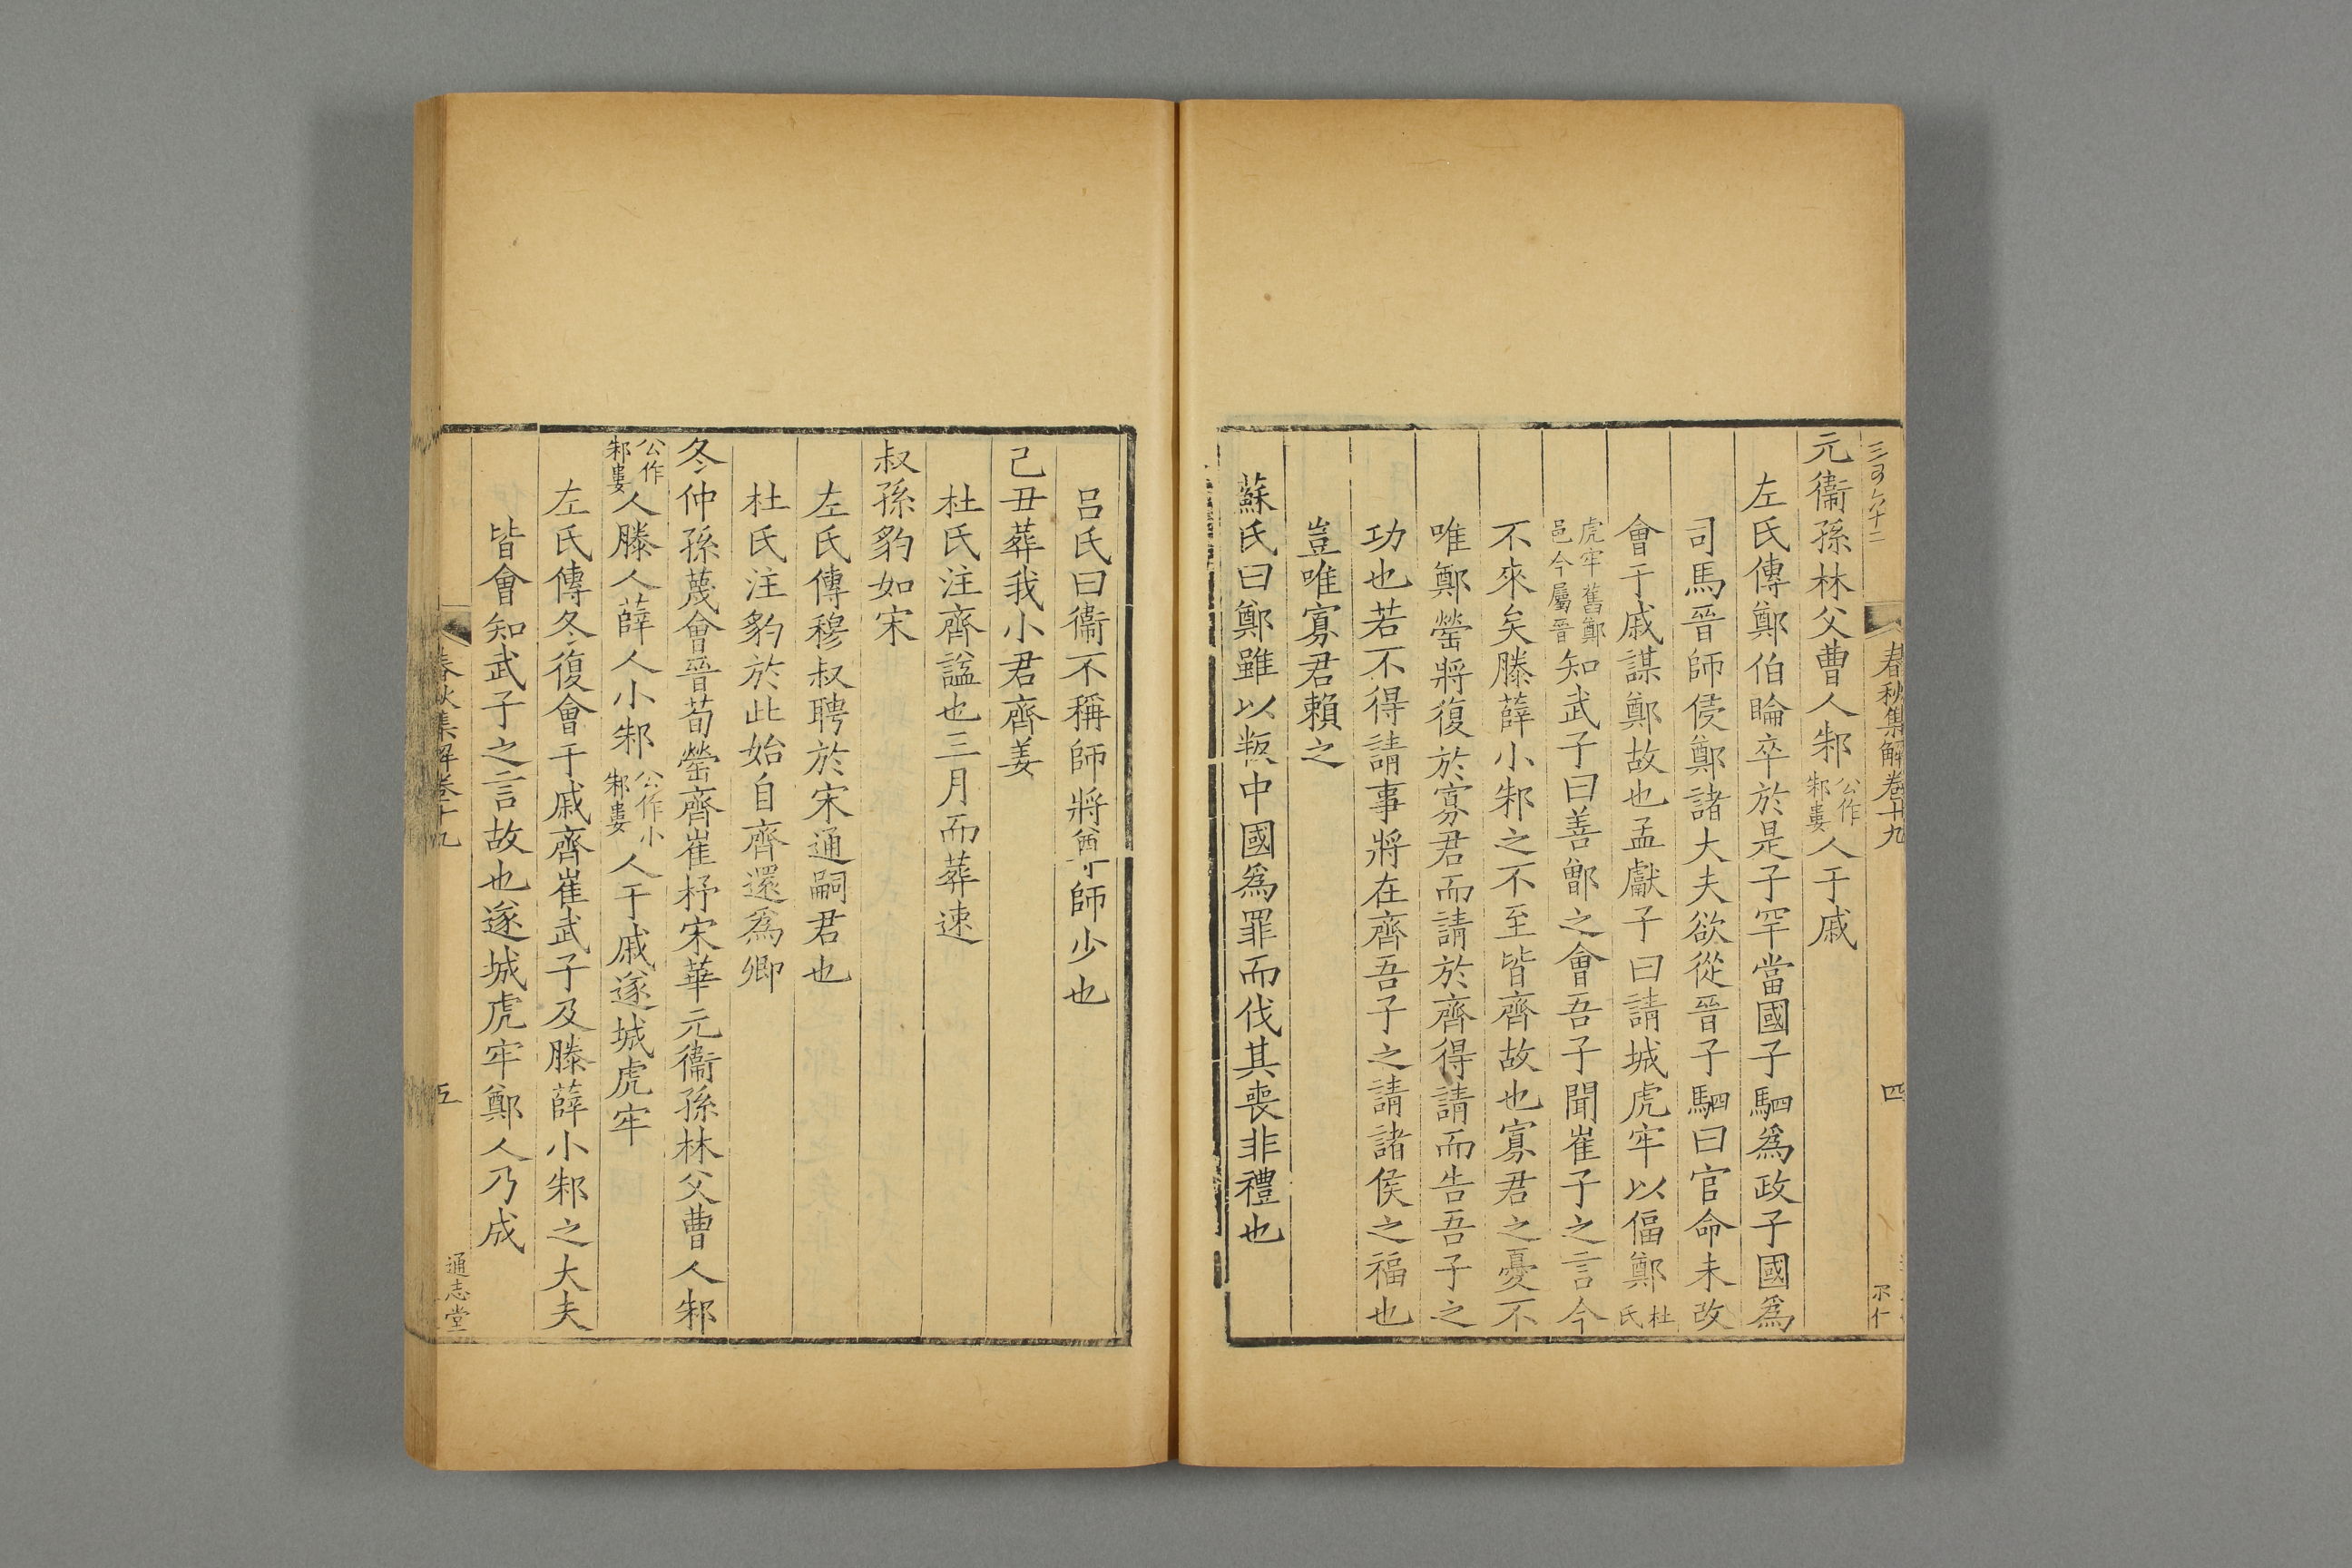 春秋集解卷十九
四
元衞孫林父曹人邾公作邾婁人于戚
左氏傳鄭伯睔卒於是子罕當國子駟爲政子國爲
司馬晉師侵鄭諸大夫欲從晉子駟曰官命未改
會于戚謀鄭故也孟獻子曰請城虎牢以偪鄭杜氏
虎牢舊鄭邑今屬晉知武子曰善鄫之會吾子聞崔子之言今
不來矣滕薛小邾之不至皆齊故也寡君之憂不
唯鄭罃將復於寡君而請於齊得請而告吾子之
功也若不得請事將在齊吾子之請諸侯之福也
豈唯寡君賴之
蘇氏曰鄭雖以叛中國爲罪而伐其喪非禮也
呂氏曰衞不稱師將尊師少也
己丑葬我小君齊姜
杜氏注齊諡也三月而葬速
叔孫豹如宋
左氏傳穆叔聘於宋通嗣君也
杜氏注豹於此始自齊還爲卿
冬仲孫蔑會晉荀罃齊崔杼宋華元衞孫林父曹人邾
公作邾婁人滕人薛人小邾公作小邾婁人于戚遂城虎牢
左氏傳冬復會于戚齊崔武子及滕薛小邾之大夫
皆會知武子之言故也遂城虎牢鄭人乃成
春秋集解卷十九
五
通志堂